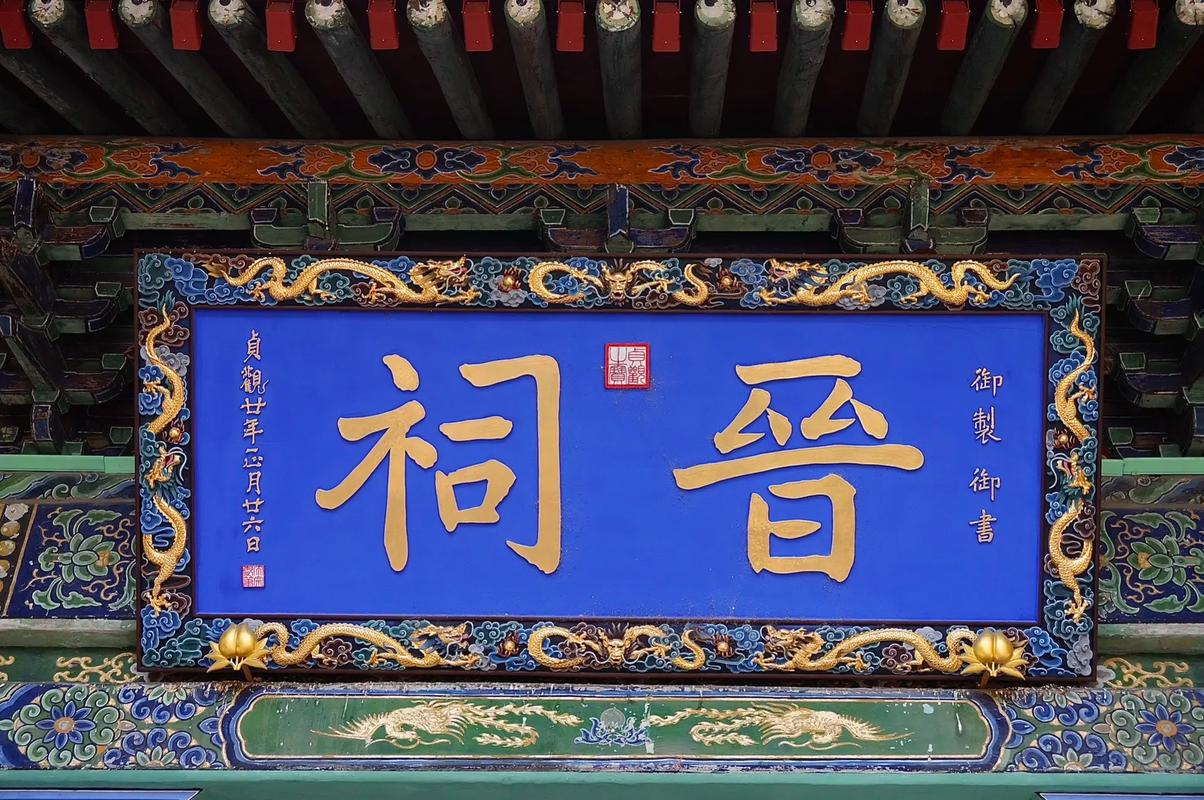 御製 御書
晉祠
貞觀之寶
貞觀廿年正月廿六日